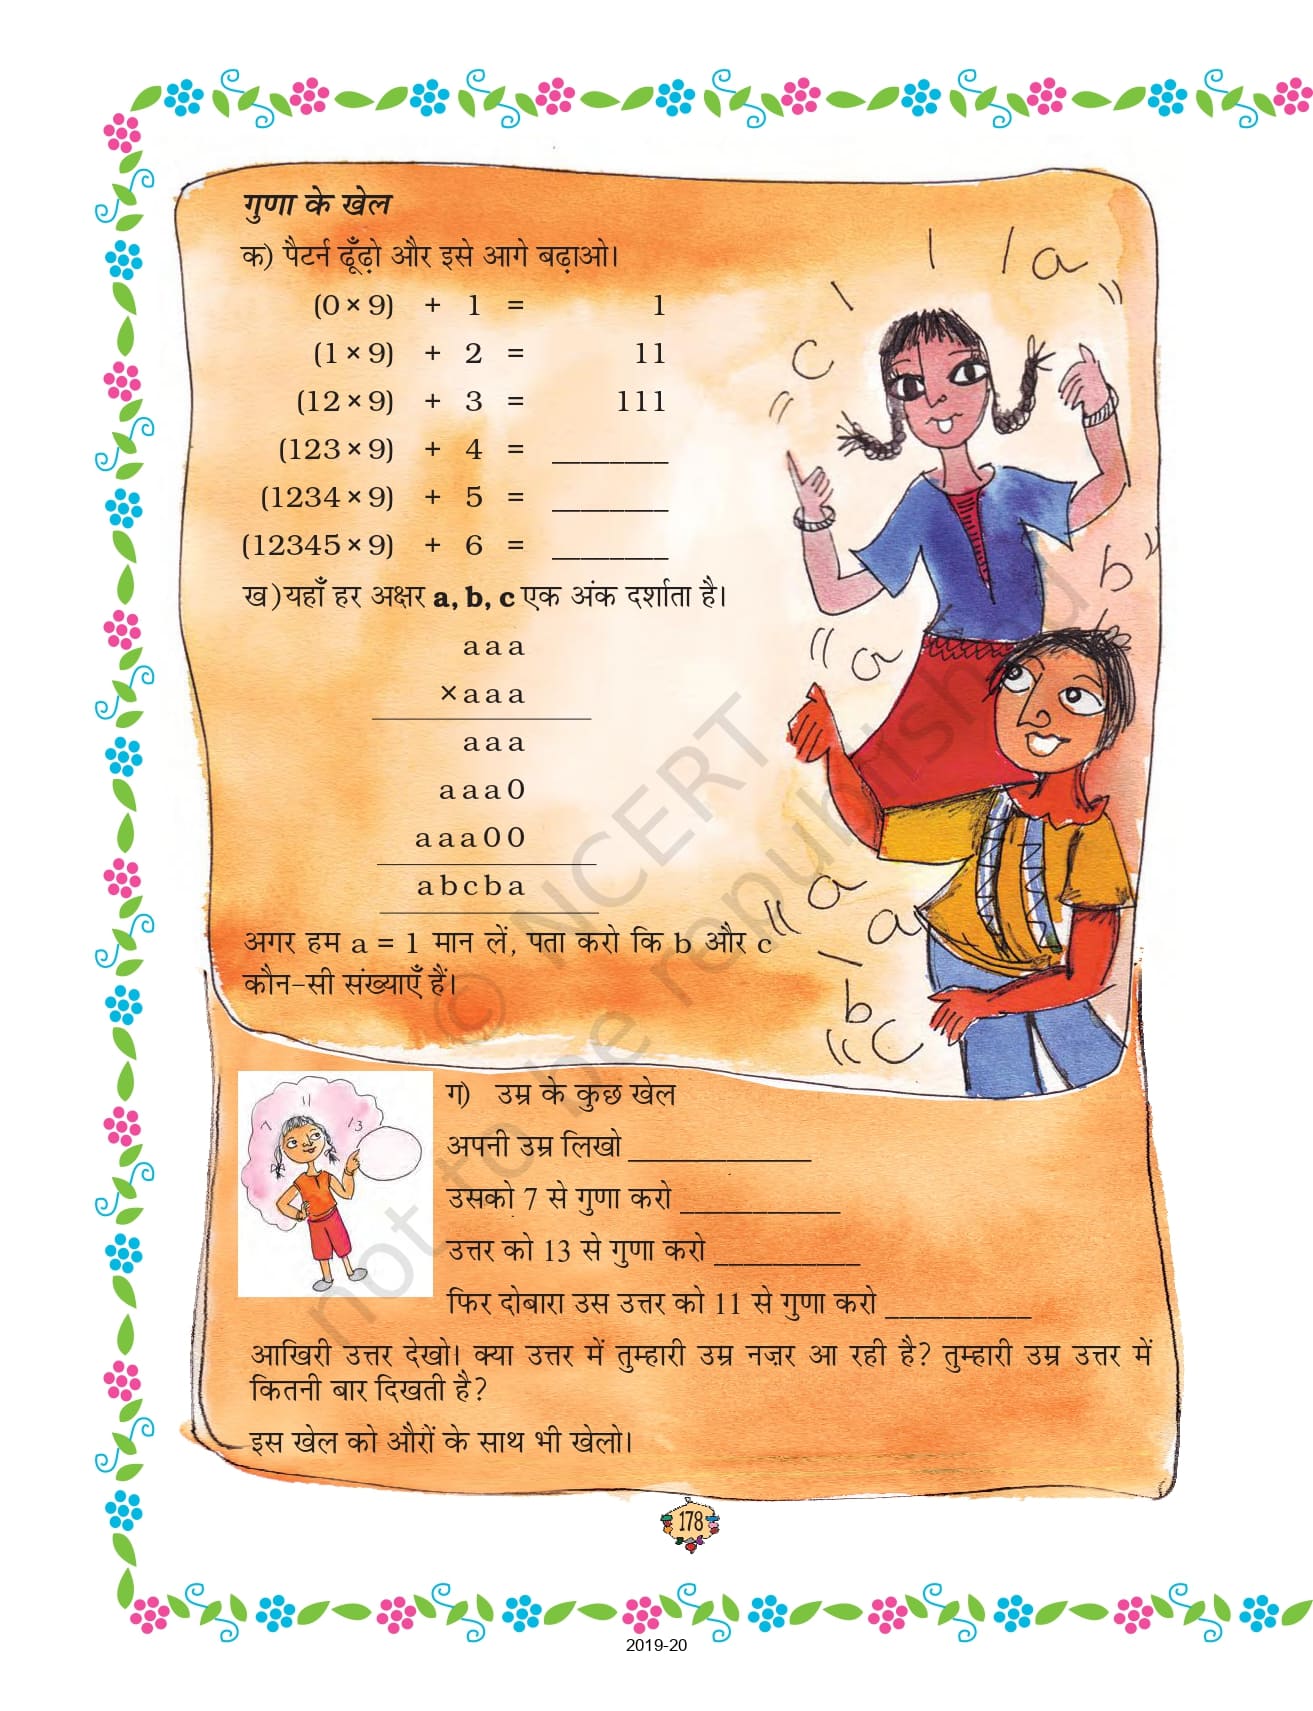 गुणा के खेल
क) पैटर्न ढूँढ़ो और इसे आगे बढ़ाओ।
(0 × 9) + 1 = 1
(1 × 9) + 2 = 11
(12 × 9) + 3 = 111
(123 × 9) + 4 = ________
(1234 × 9) + 5 = ________
(12345 × 9) + 6 = ________
ख) यहाँ हर अक्षर a, b, c एक अंक दर्शाता है।
a a a
× a a a
a a a
a a a 0
a a a 0 0
a b c b a
अगर हम a = 1 मान लें, पता करो कि b और c
कौन-सी संख्याएँ हैं।
ग) उम्र के कुछ खेल
अपनी उम्र लिखो ____________
उसको 7 से गुणा करो ___________
उत्तर को 13 से गुणा करो __________
फिर दोबारा उस उत्तर को 11 से गुणा करो __________
आखिरी उत्तर देखो। क्या उत्तर में तुम्हारी उम्र नज़र आ रही है? तुम्हारी उम्र उत्तर में
कितनी बार दिखती है?
इस खेल को औरों के साथ भी खेलो।
178
2019-20
© NCERT
not to be republished
a
c
b
a
a
a
b
c
7
11
13